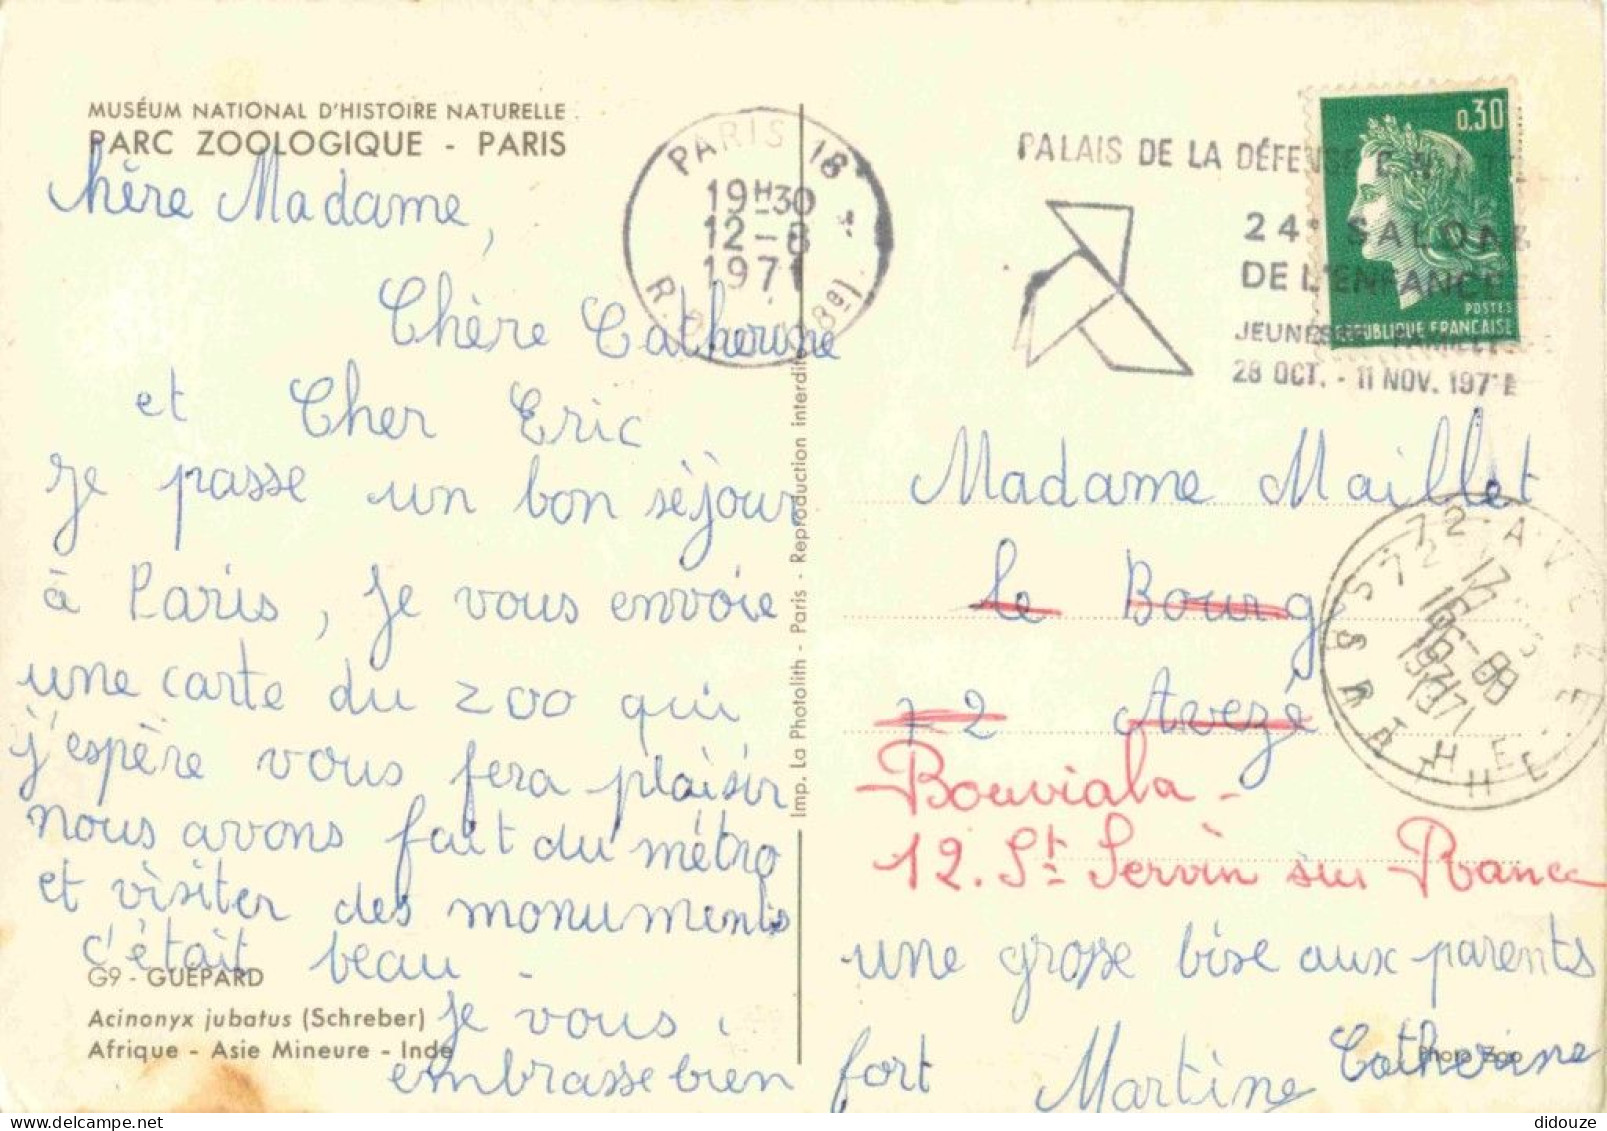 MUSÉUM NATIONAL D'HISTOIRE NATURELLE
PARC ZOOLOGIQUE - PARIS
chère Madame,
Chère Catherine
et Cher Eric
je passe un bon séjour
à Paris, je vous envoie
une carte du zoo qui
j'espère vous fera plaisir
nous avons fait du métro
et visiter des monuments
c'était beau.
Je vous
embrasse bien fort
G9 - GUÉPARD
Acinonyx jubatus (Schreber)
Afrique - Asie Mineure - Inde
Imp. La Photolith - Paris - Reproduction interdite
PARIS 18
19H30
12-8
1971
PALAIS DE LA DÉFENSE
24e SALON
DE L'ENFANCE
JEUNESSE
28 OCT. - 11 NOV. 1971
0,30
POSTES
RÉPUBLIQUE FRANÇAISE
Madame Maillet
le Bourg
72 Avezé
Bouviala -
12. St Servin sur Rance
72 AVEZE
16-8
1971
SARTHE
une grosse bise aux parents
Martine Catherine
Photo Zoo
didouze